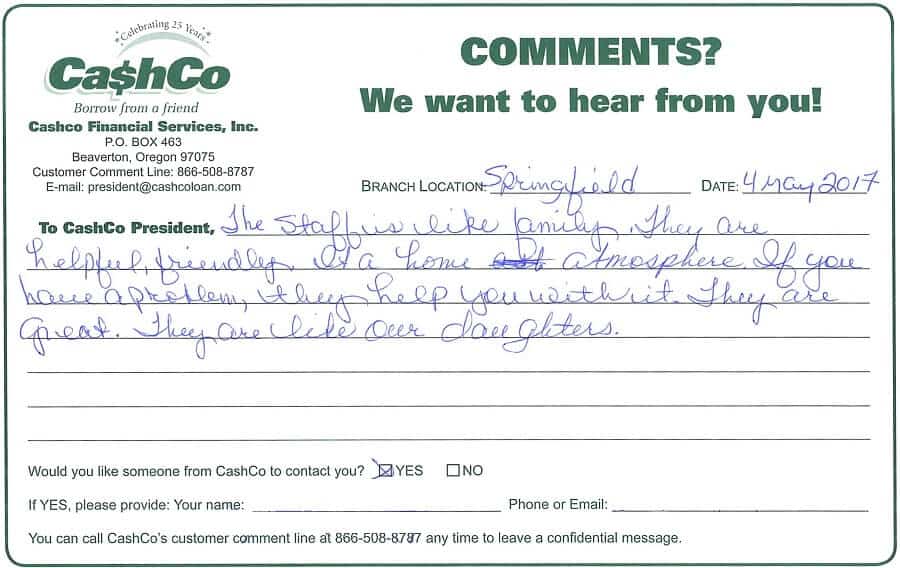 Celebrating 25 Years
Ca$hCo
Borrow from a friend
Cashco Financial Services, Inc.
P.O. BOX 463
Beaverton, Oregon 97075
Customer Comment Line: 866-508-8787
E-mail: president@cashcoloan.com
COMMENTS?
We want to hear from you!
BRANCH LOCATION: Springfield DATE: 4 May 2017
To CashCo President, The Staff is like family. They are
helpful, friendly. It a home atmosphere. If you
have a problem, they help you with it. They are
Great. They are like our daughters.
Would you like someone from CashCo to contact you? ☒ YES ☐ NO
If YES, please provide: Your name: Phone or Email:
You can call CashCo's customer comment line at 866-508-8787 any time to leave a confidential message.